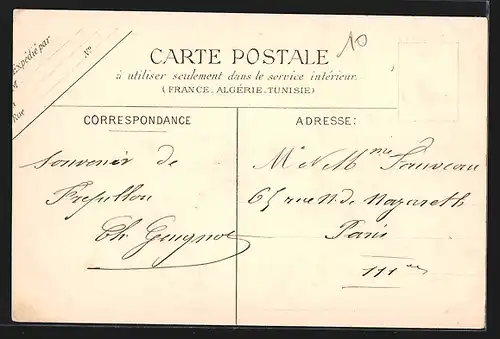 Expédié par
N°
Rue
10
CARTE POSTALE
à utiliser seulement dans le service intérieur.
(FRANCE. ALGÉRIE. TUNISIE)
CORRESPONDANCE
ADRESSE:
Souvenir de
Ch.
Mr & Mme Sauveau
65 rue N. D. Nazareth
Paris
III